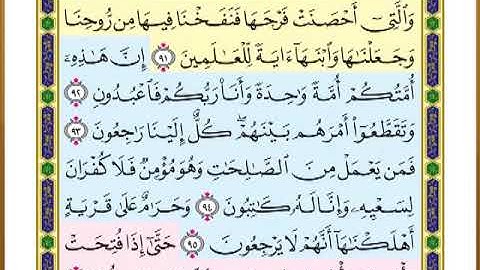 وَٱلَّتِىٓ أَحۡصَنَتۡ فَرۡجَهَا فَنَفَخۡنَا فِيهَا مِن رُّوحِنَا
وَجَعَلۡنَٰهَا وَٱبۡنَهَآ ءَايَةٗ لِّلۡعَٰلَمِينَ ٩١ إِنَّ هَٰذِهِۦٓ
أُمَّتُكُمۡ أُمَّةٗ وَٰحِدَةٗ وَأَنَا۠ رَبُّكُمۡ فَٱعۡبُدُونِ ٩٢
وَتَقَطَّعُوٓاْ أَمۡرَهُم بَيۡنَهُمۡۖ كُلٌّ إِلَيۡنَا رَٰجِعُونَ ٩٣
فَمَن يَعۡمَلۡ مِنَ ٱلصَّٰلِحَٰتِ وَهُوَ مُؤۡمِنٞ فَلَا كُفۡرَانَ
لِسَعۡيِهِۦ وَإِنَّا لَهُۥ كَٰتِبُونَ ٩٤ وَحَرَٰمٌ عَلَىٰ قَرۡيَةٍ
أَهۡلَكۡنَٰهَآ أَنَّهُمۡ لَا يَرۡجِعُونَ ٩٥ حَتَّىٰٓ إِذَا فُتِحَتۡ